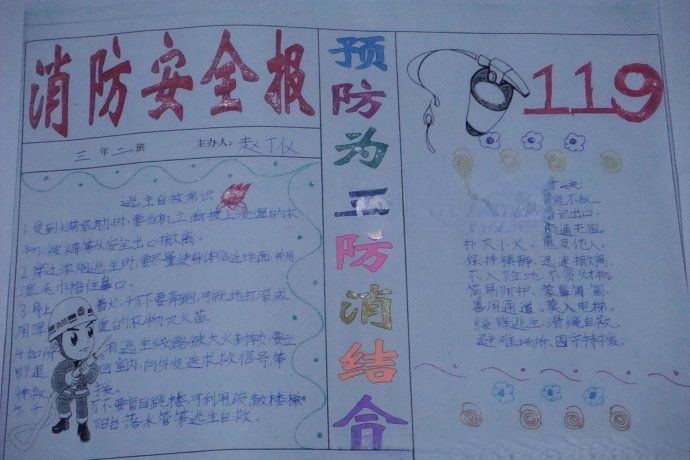 消防安全报
三年二班 主办人：赵丁仪
逃生自救常识
1.受到火势威胁时,要当机立断披上浸湿的衣
物、被褥等从安全出口撤离。
2.穿过浓烟逃生时,要尽量使身体贴近地面,并用
湿毛巾捂住鼻口。
3.身上着火,千万不要奔跑,可就地打滚或
用厚重的衣物灭火苗。
4.如所有逃生线路被大火封锁,要立
即退回室内,向外发送求救信号,等
待救援。
5.千万不要盲目跳楼,可利用疏散楼梯
阳台落水管等逃生自救。
预防为主防消结合
119
诀:
不乱
记出口
通无阻
扑灭小火、惠及他人、
保持镇静、迅速撤离、
不入险地、不贪财物、
简易防护、蒙鼻匍匐、
善用通道、莫入电梯、
缓降逃生、滑绳自救、
避难场所、固守待援、